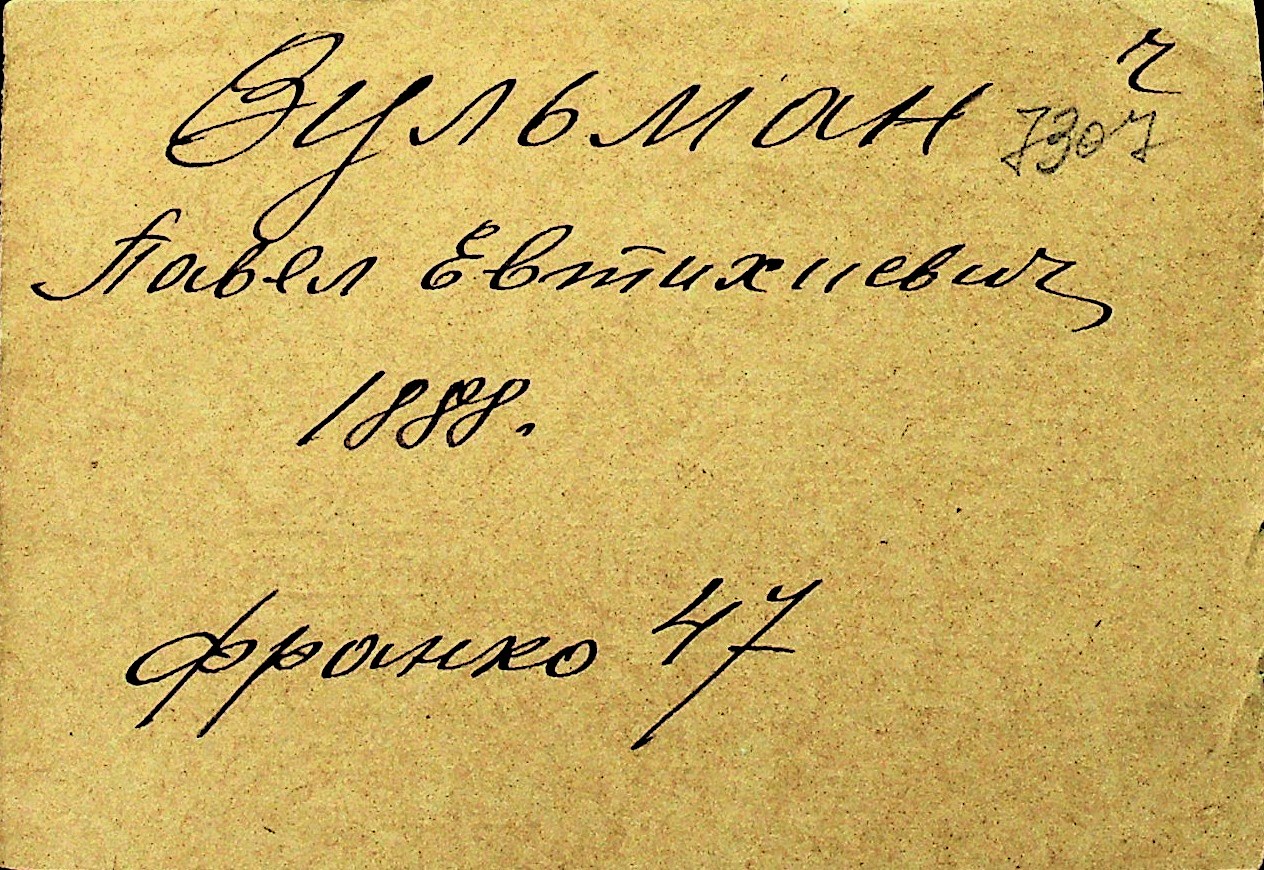 Вульман
ч
7307
Павел Евтихиевич
1888.
франко 47